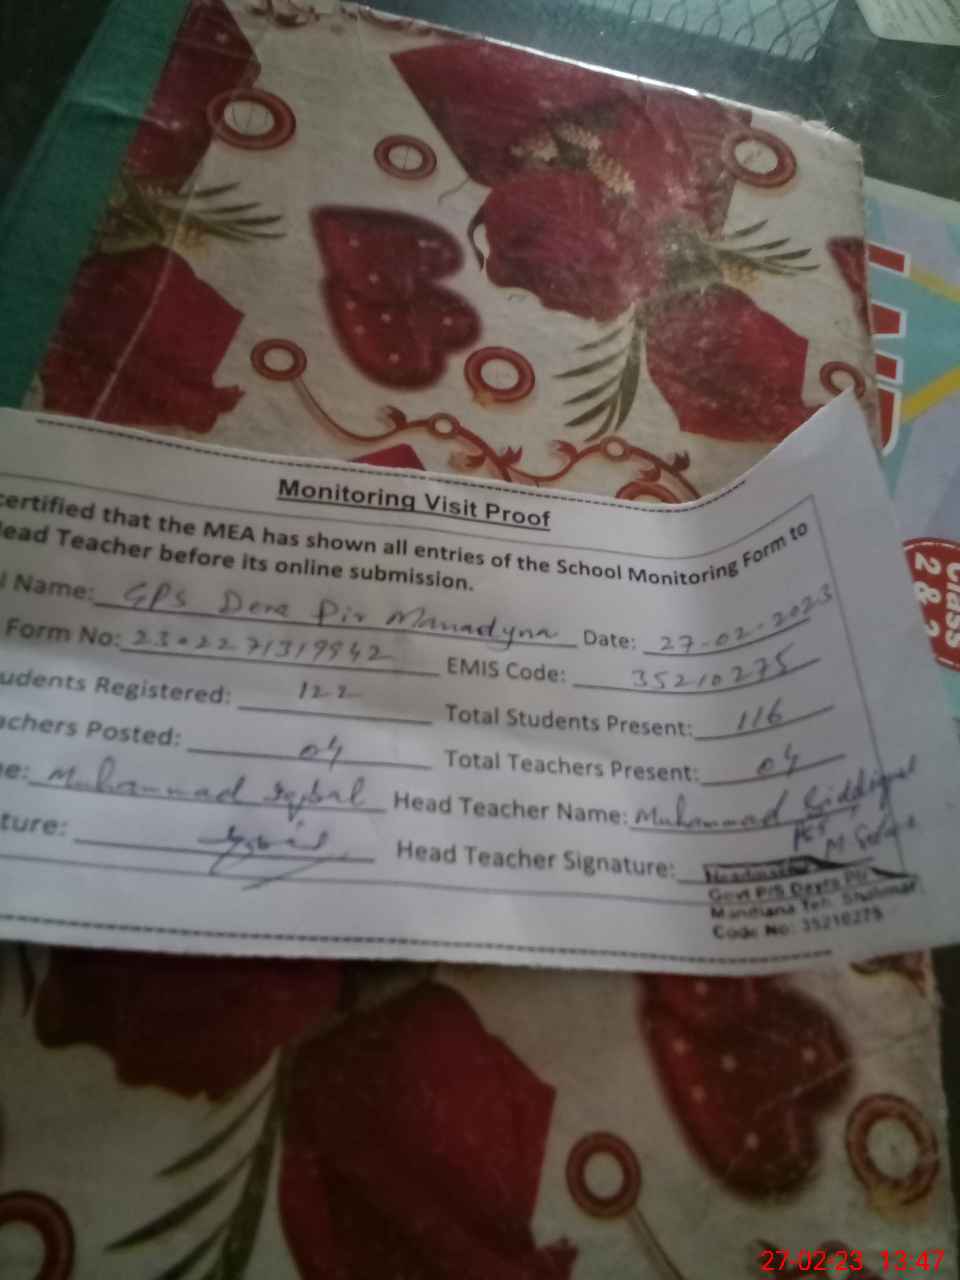 Monitoring Visit Proof
certified that the MEA has shown all entries of the School Monitoring Form to
ead Teacher before its online submission.
l Name: GPS Dera Pir Manadyna Date: 27-02-2023
Form No: EMIS Code: 35210275
udents Registered: 122 Total Students Present: 116
achers Posted: 04 Total Teachers Present: 04
e: Muhammad Iqbal Head Teacher Name: Muhammad Siddique
ture: Head Teacher Signature:
Govt P/S
Mandiana Teh. Shalimar
Code No: 35210275
Class
2 &
27-02-23 13:47